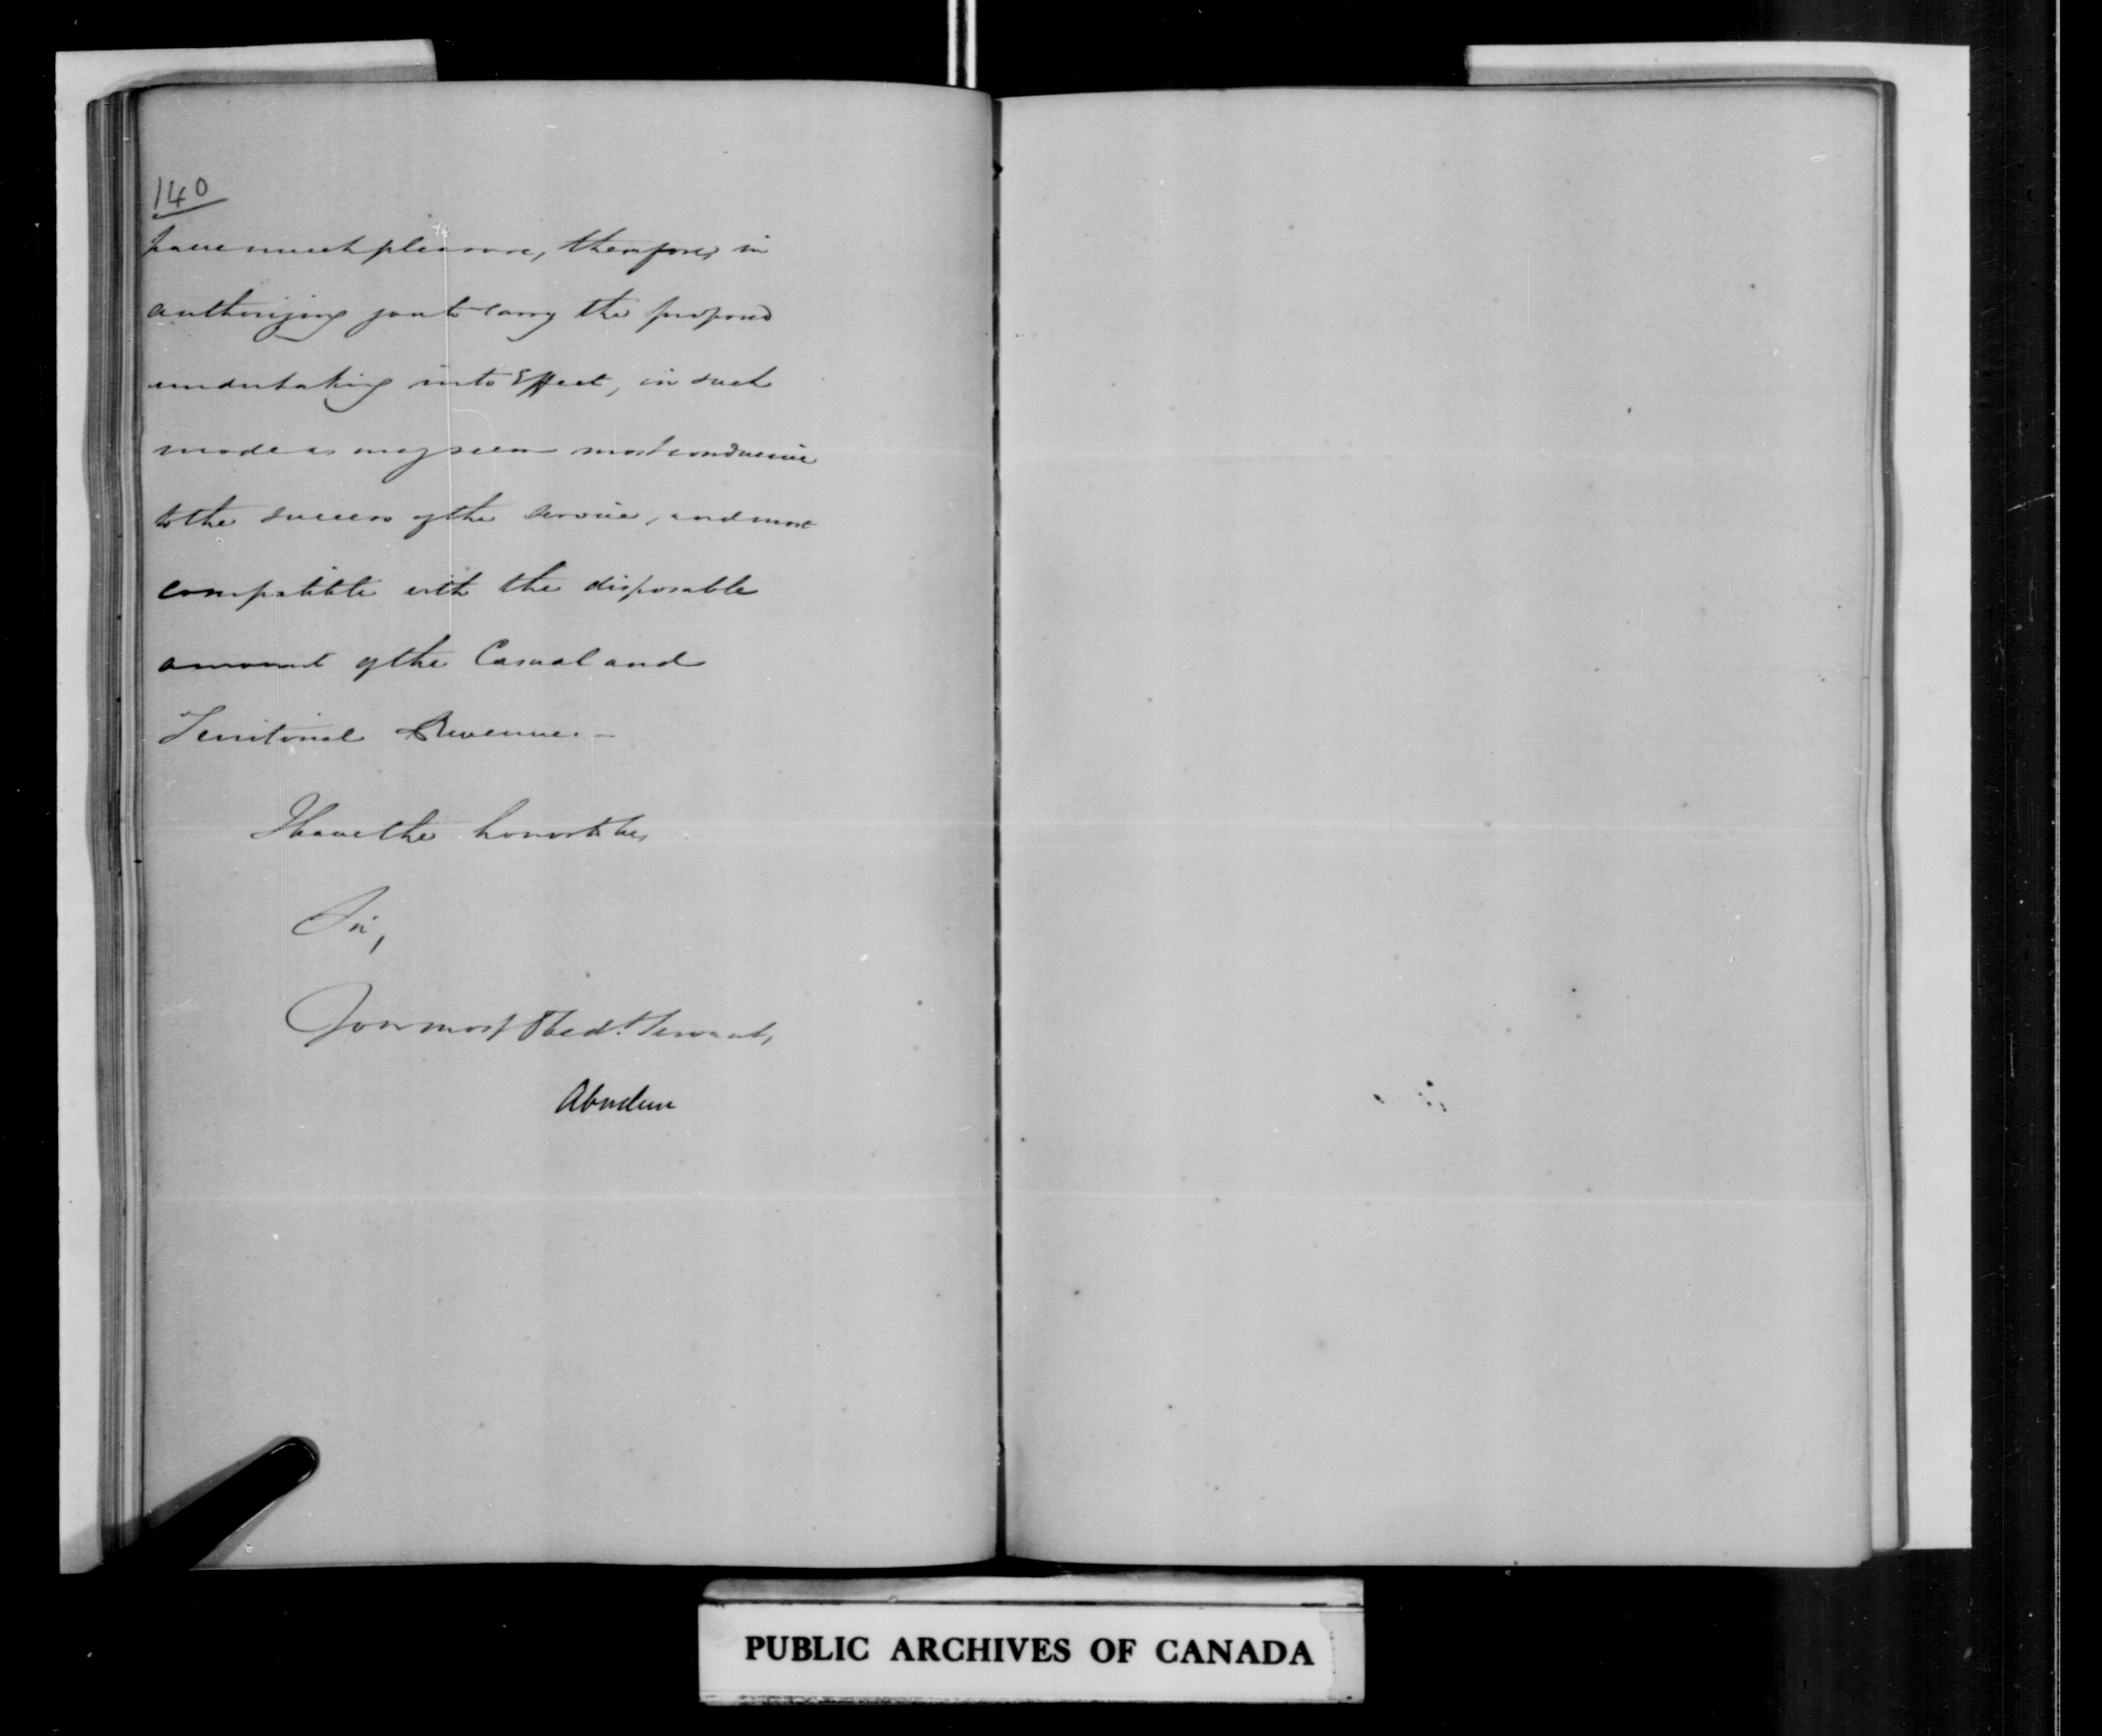 140
have much pleasure, therefore, in
authorizing you to carry the proposed
undertaking into Effect, in such
mode as may seem most conducive
to the success of the service, and most
compatible with the disposable
amount of the Casual and
Territorial Revenue. -
I have the honor to be,
Sir,
Your most Obed.t Servant,
Aberdeen
PUBLIC ARCHIVES OF CANADA